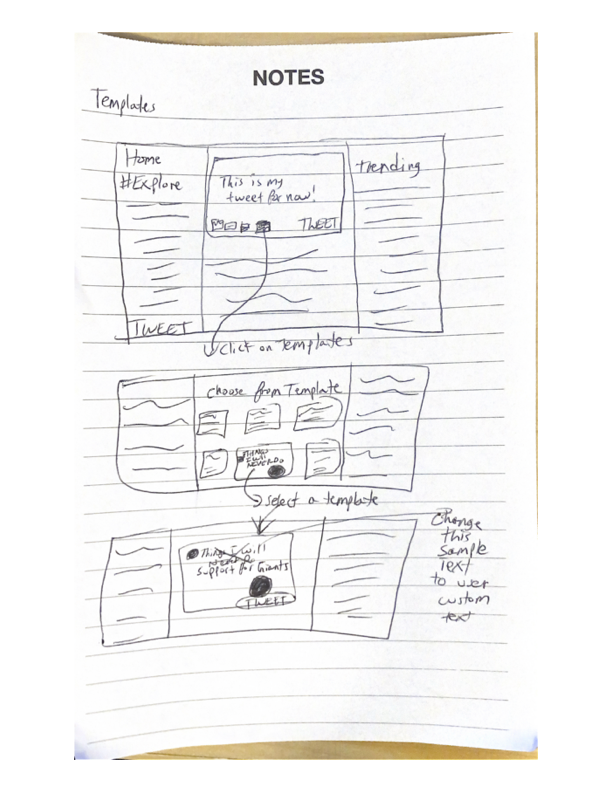 NOTES
Templates
Home
#Explore
This is my
tweet for now!
TWEET
Trending
TWEET
Click on Templates
Choose from Template
THINGS
I WILL
NEVER DO
Select a template
Things I will
Support for Giants
TWEET
Change
this
Sample
Text
to user
custom
text